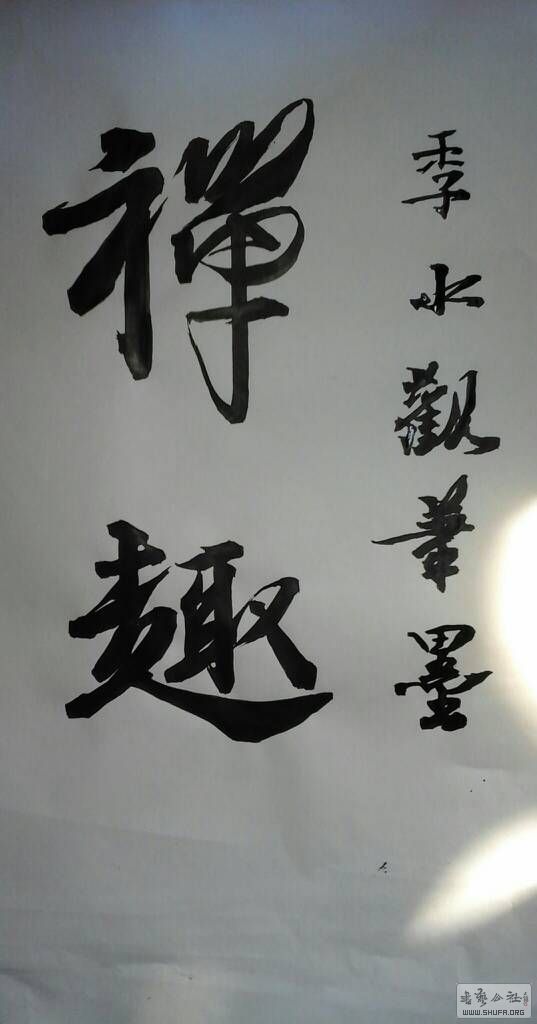 季水觀華墨
禪趣
书艺公社
WWW.SHUFA.ORG